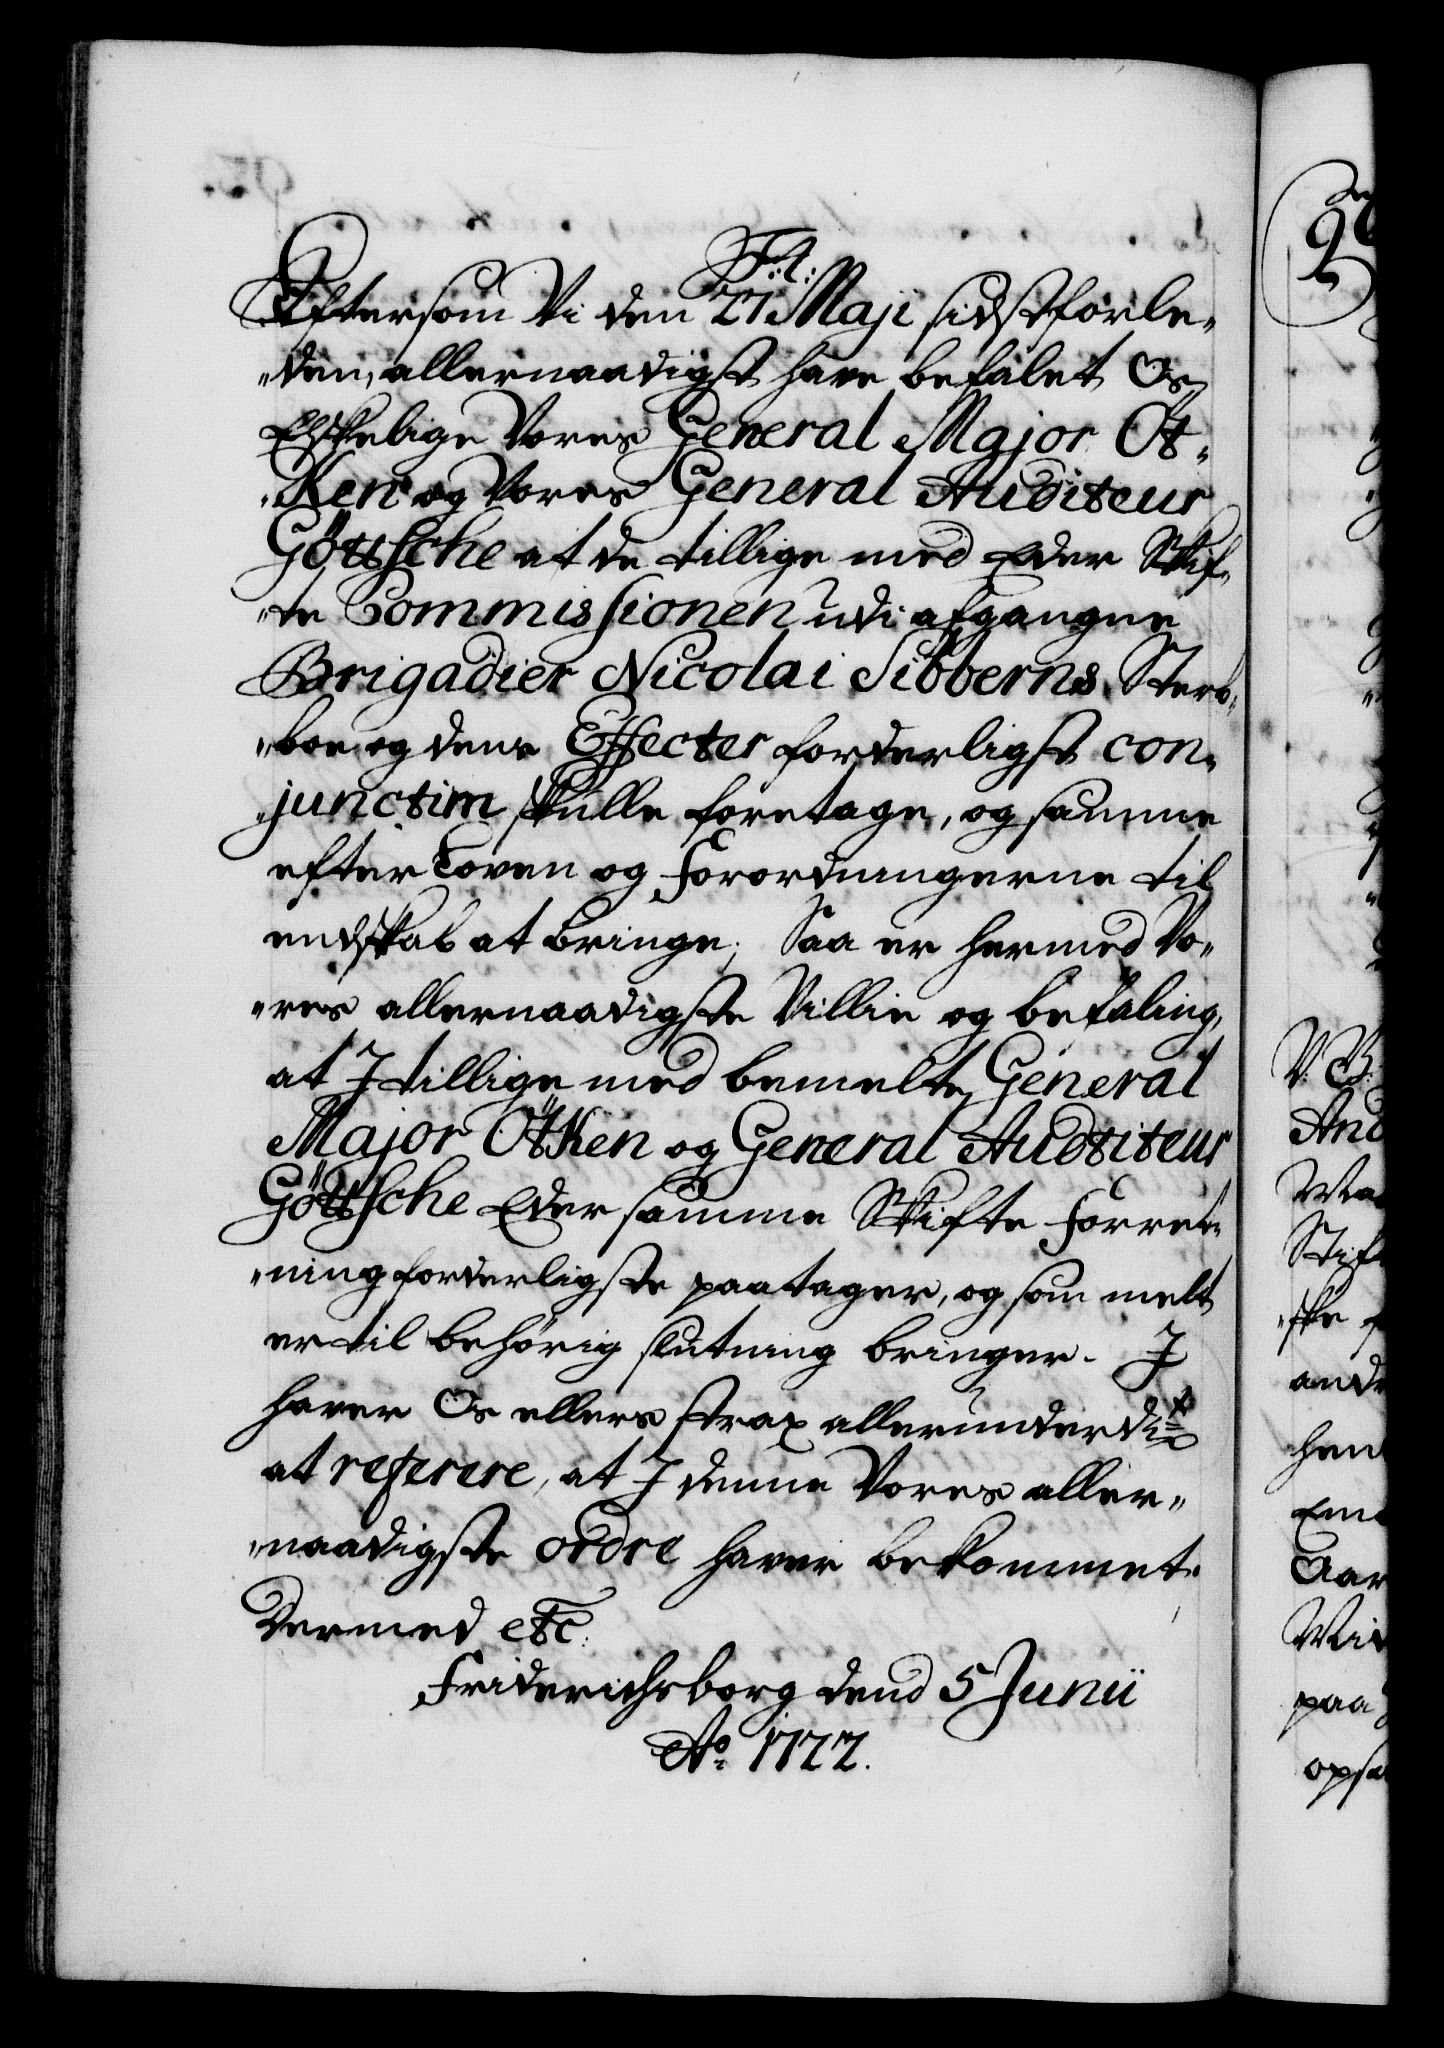 F: 4:
Eftersom Vi den 27 Maji sidstforle-
-den, allernaadigst have befalet Os
Elskelige Vores General Major Öt-
-Ken og Vores General Auditeur
Göttsche at de tillige med Eder Skif-
-te Commissionen udi afgangne
Brigadier Nicolai Sibberns Sterb-
-boe og dens Effecter forderligst con-
-junctim skulle foretage, og samme
efter Loven og Forordningerne til
endskab at bringe; Saa er hermed Vo-
-res allernaadigste Villie og befaling,
at I tillige med bemelte General
Major ÖtKen og General Auditeur
Göttsche Eder samme Skifte Forret-
-ning forderligste paatager, og som melt
er til behörig slutning bringer. I
haver Os ellers strax allerunderd:st
at referere, at I denne Vores aller-
-naadigste ordre haver bekommet.
Dermed etc:
Friderichsborg dend 5 Junii
Ao 1722.
V: B: